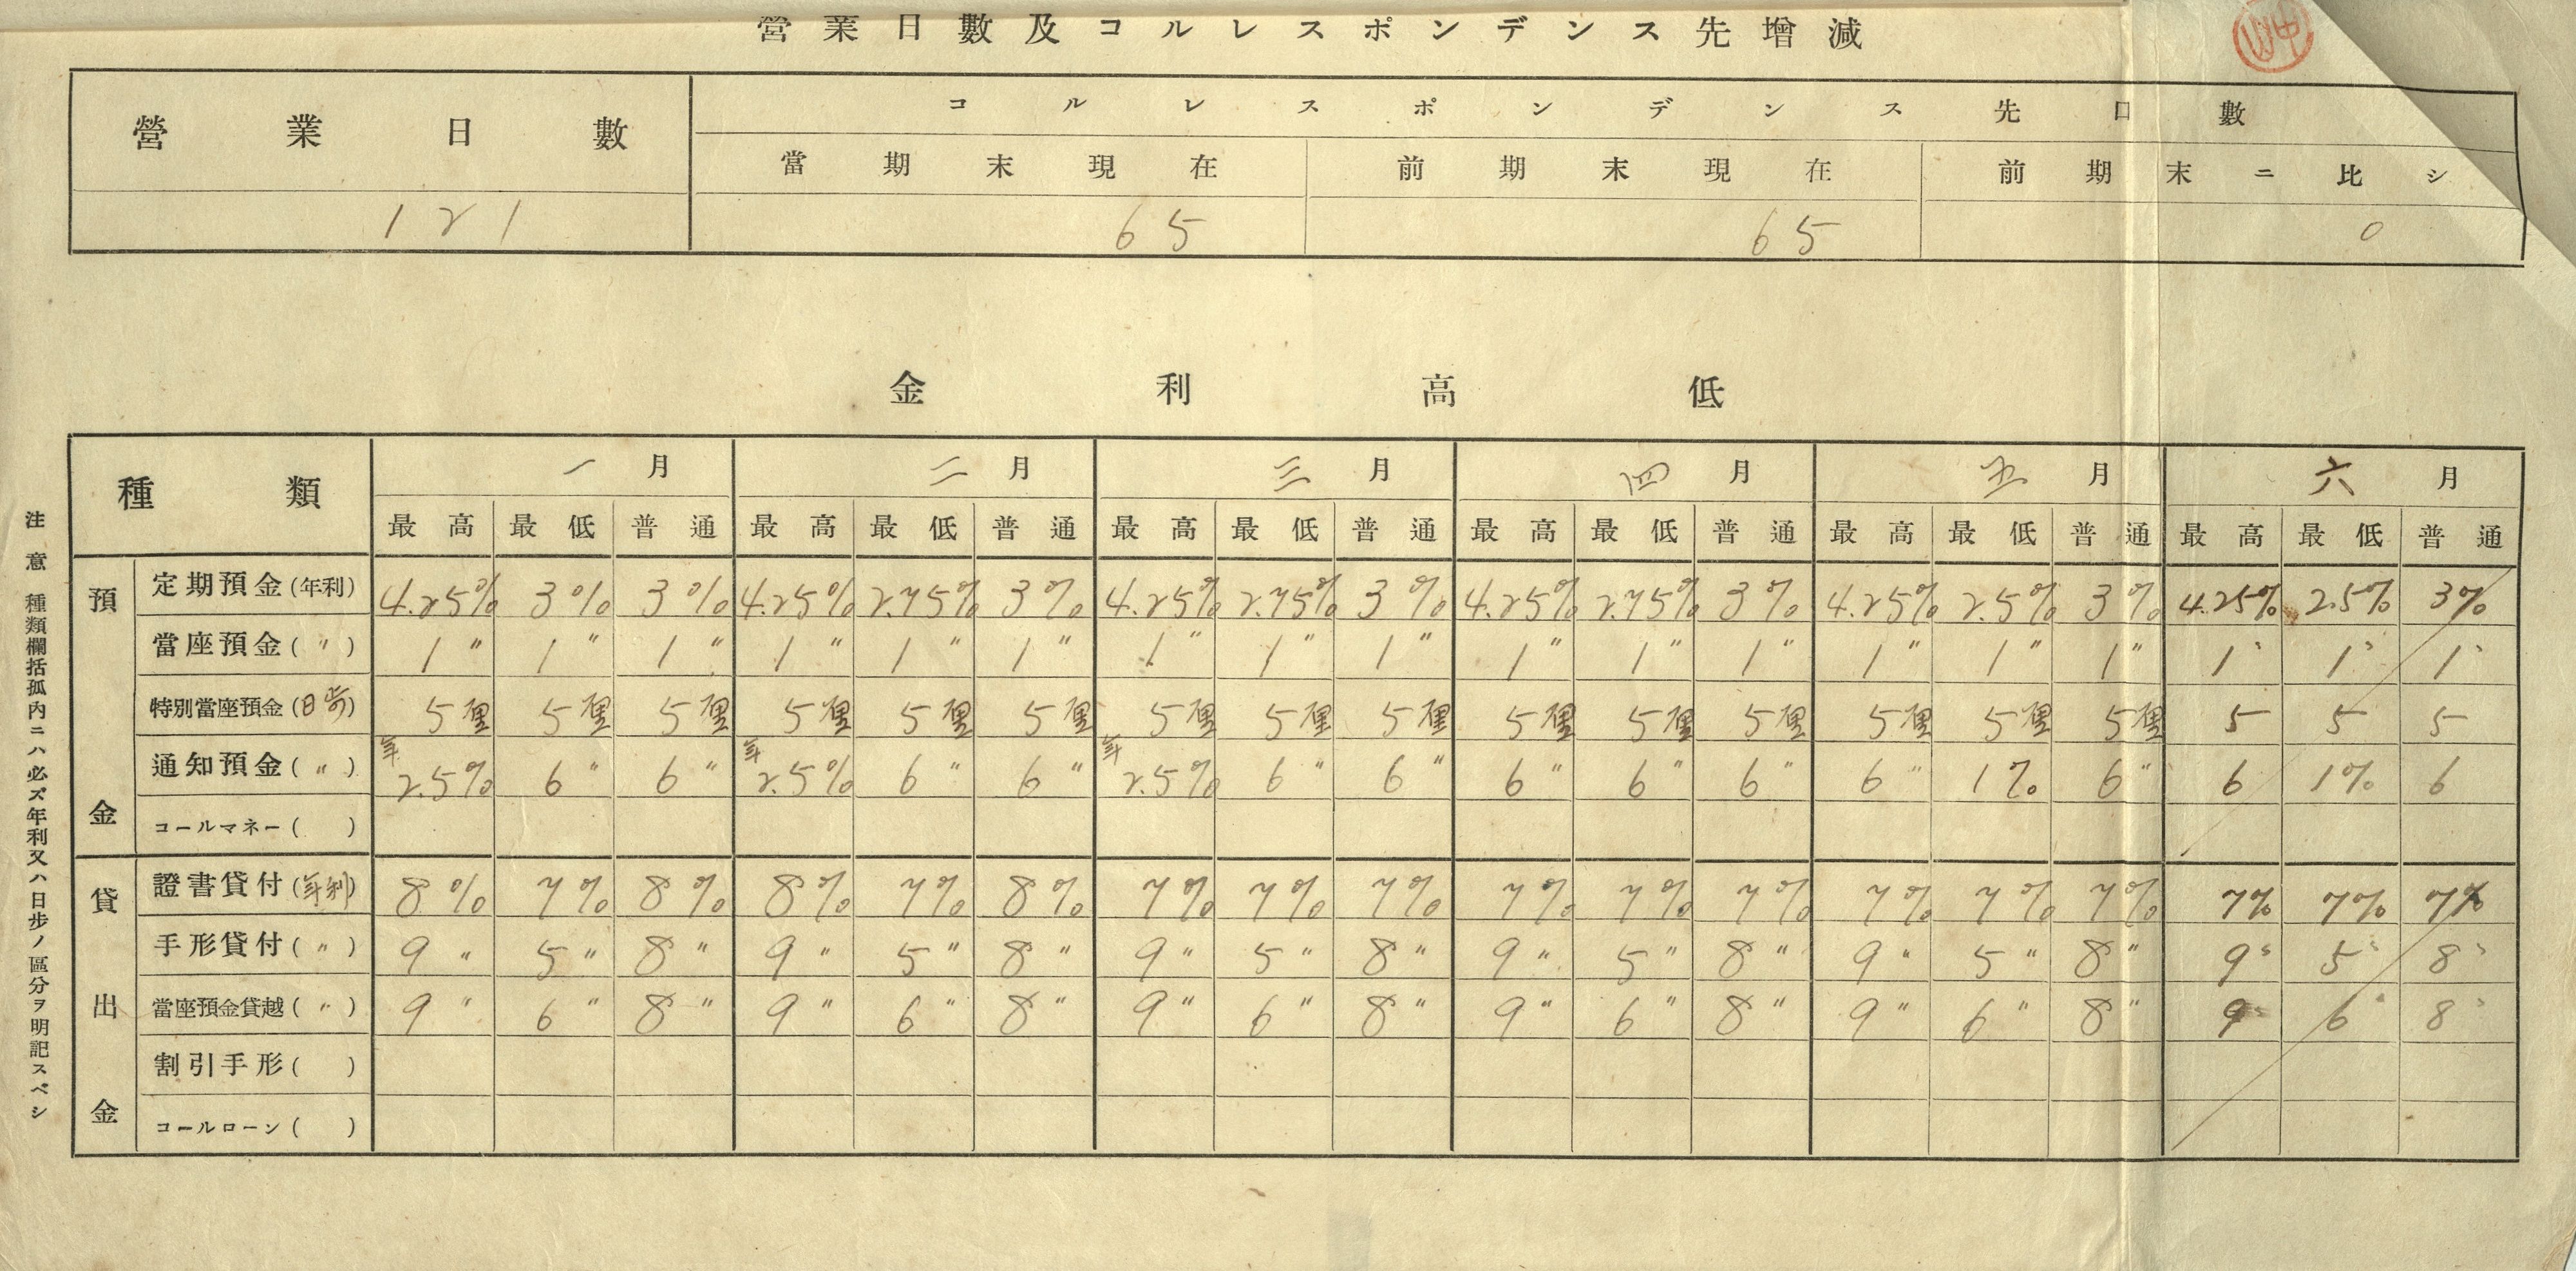 營業日數及コルレスポンデンス先增減
營業日數 コルレスポンデンス先口數
當期末現在 前期末現在 前期末ニ比シ
121 65 65 0
金利高低
種類 一月 二月 三月 四月 五月 六月
最高 最低 普通 最高 最低 普通 最高 最低 普通 最高 最低 普通 最高 最低 普通 最高 最低 普通
預金
定期預金(年利) 4.25% 3% 3% 4.25% 2.75% 3% 4.25% 2.75% 3% 4.25% 2.75% 3% 4.25% 2.5% 3% 4.25% 2.5% 3%
當座預金(〃) 1〃 1〃 1〃 1〃 1〃 1〃 1〃 1〃 1〃 1〃 1〃 1〃 1〃 1〃 1〃 1〃 1〃 1〃
特別當座預金(日歩) 5厘 5厘 5厘 5厘 5厘 5厘 5厘 5厘 5厘 5厘 5厘 5厘 5厘 5厘 5厘 5 5 5
通知預金(〃) 年2.5% 6〃 6〃 年2.5% 6〃 6〃 年2.5% 6〃 6〃 6〃 6〃 6〃 6〃 1% 6〃 6 1% 6
コールマネー( )
貸出金
證書貸付(年利) 8% 7% 8% 8% 7% 8% 7% 7% 7% 7% 7% 7% 7% 7% 7% 7% 7% 7%
手形貸付(〃) 9〃 5〃 8〃 9〃 5〃 8〃 9〃 5〃 8〃 9〃 5〃 8〃 9〃 5〃 8〃 9〃 5〃 8〃
當座預金貸越(〃) 9〃 6〃 8〃 9〃 6〃 8〃 9〃 6〃 8〃 9〃 6〃 8〃 9〃 6〃 8〃 9〃 6〃 8〃
割引手形( )
コールローン( )
注意 種類欄括孤內ニハ必ズ年利又ハ日步ノ區分ヲ明記スベシ